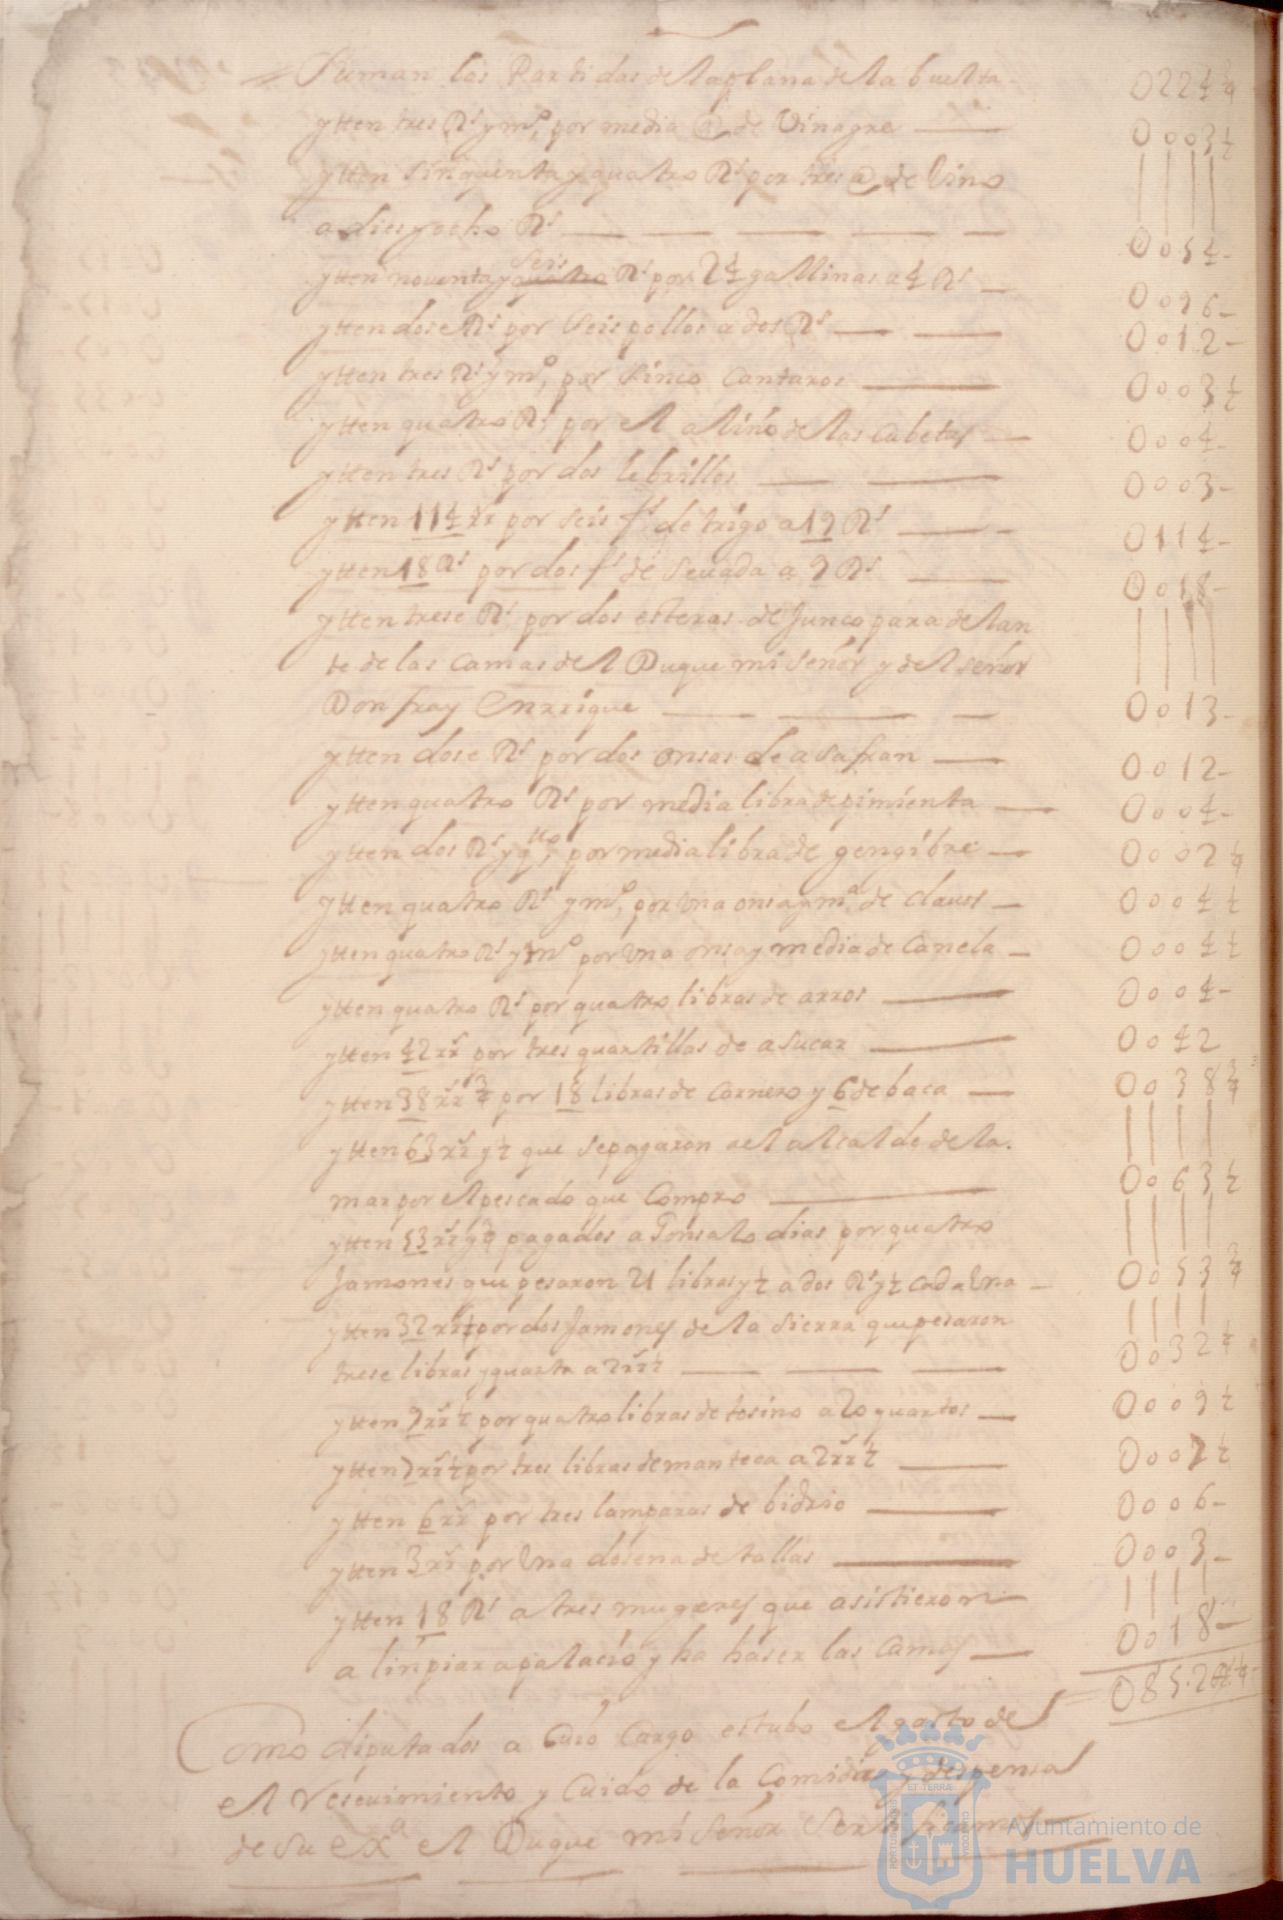 Suman las Partidas de la plana de la buelta 0224 ¼
ytten tres Rs y mo, por media @ de Vinagre 0003 ½
ytten sinquenta y quatro Rs por tres @ de Vino
a dies y ocho Rs 0054
ytten noventa y quatro seis Rs por 24 gallinas a 4 Rs 0096
ytten dose Rs por seis pollos a dos Rs 0012
ytten tres Rs y mo, por sinco Cantaros 0003 ½
ytten quatro Rs por el aliño de las cubetas 0004
ytten tres Rs por dos lebrillos 0003
ytten 114 rr por seis fs de trigo a 19 Rs 0114
ytten 18 Rs por dos fs de Sevada a 9 Rs 0018
ytten trese Rs por dos esteras de Junco para delan
te de las camas del Duque mi señor y del señor
Don fray Enrrique 0013
ytten dose Rs por dos onsas de asafran 0012
ytten quatro Rs por media libra de pimienta 0004
ytten dos Rs y qto, por media libra de gengibre 0002 ¼
ytten quatro Rs y mo, por Una onsa y ma de clavos 0004 ½
ytten quatro Rs y mo por Una onsa y media de Canela 0004 ½
ytten quatro Rs por quatro libras de arros 0004
ytten 42 rrs por tres quartillas de asucar 0042
ytten 38 rrs ¾ por 18 libras de Carnero y 6 de baca 0038 ¾
ytten 63 rrs y ½ que se pagaron a el alcalde de la
mar por el pescado que Compro 0063 ½
ytten 53 rrs y ¾ pagados a Gonsalo dias por quatro
Jamones que pesaron 21 libras y ½ a dos Rs y ½ cada Una 0053 ¾
ytten 32 rrs por dos Jamones de la Sierra que pesaron
trese libras y quarta a 2 rrs ½ 0032
ytten 9 rrs ½ por quatro libras de tosino a 20 quartos 0009 ½
ytten 7 rrs ½ por tres libras de manteca a 2 rrs ½ 0007 ½
ytten 6 rrs por tres lamparas de bidrio 0006
ytten 3 rrs por Una dosena de tallas 0003
ytten 18 Rs a tres mugeres que asistieron
a linpiar a palacio y ha haser las Camas 0018
0852
Como diputados a Cuio Cargo estubo el gasto de
el resevimiento y Cuido de la Comida y despensa
de su exa el Duque mi Señor Sertificamos
Ayuntamiento de
HUELVA